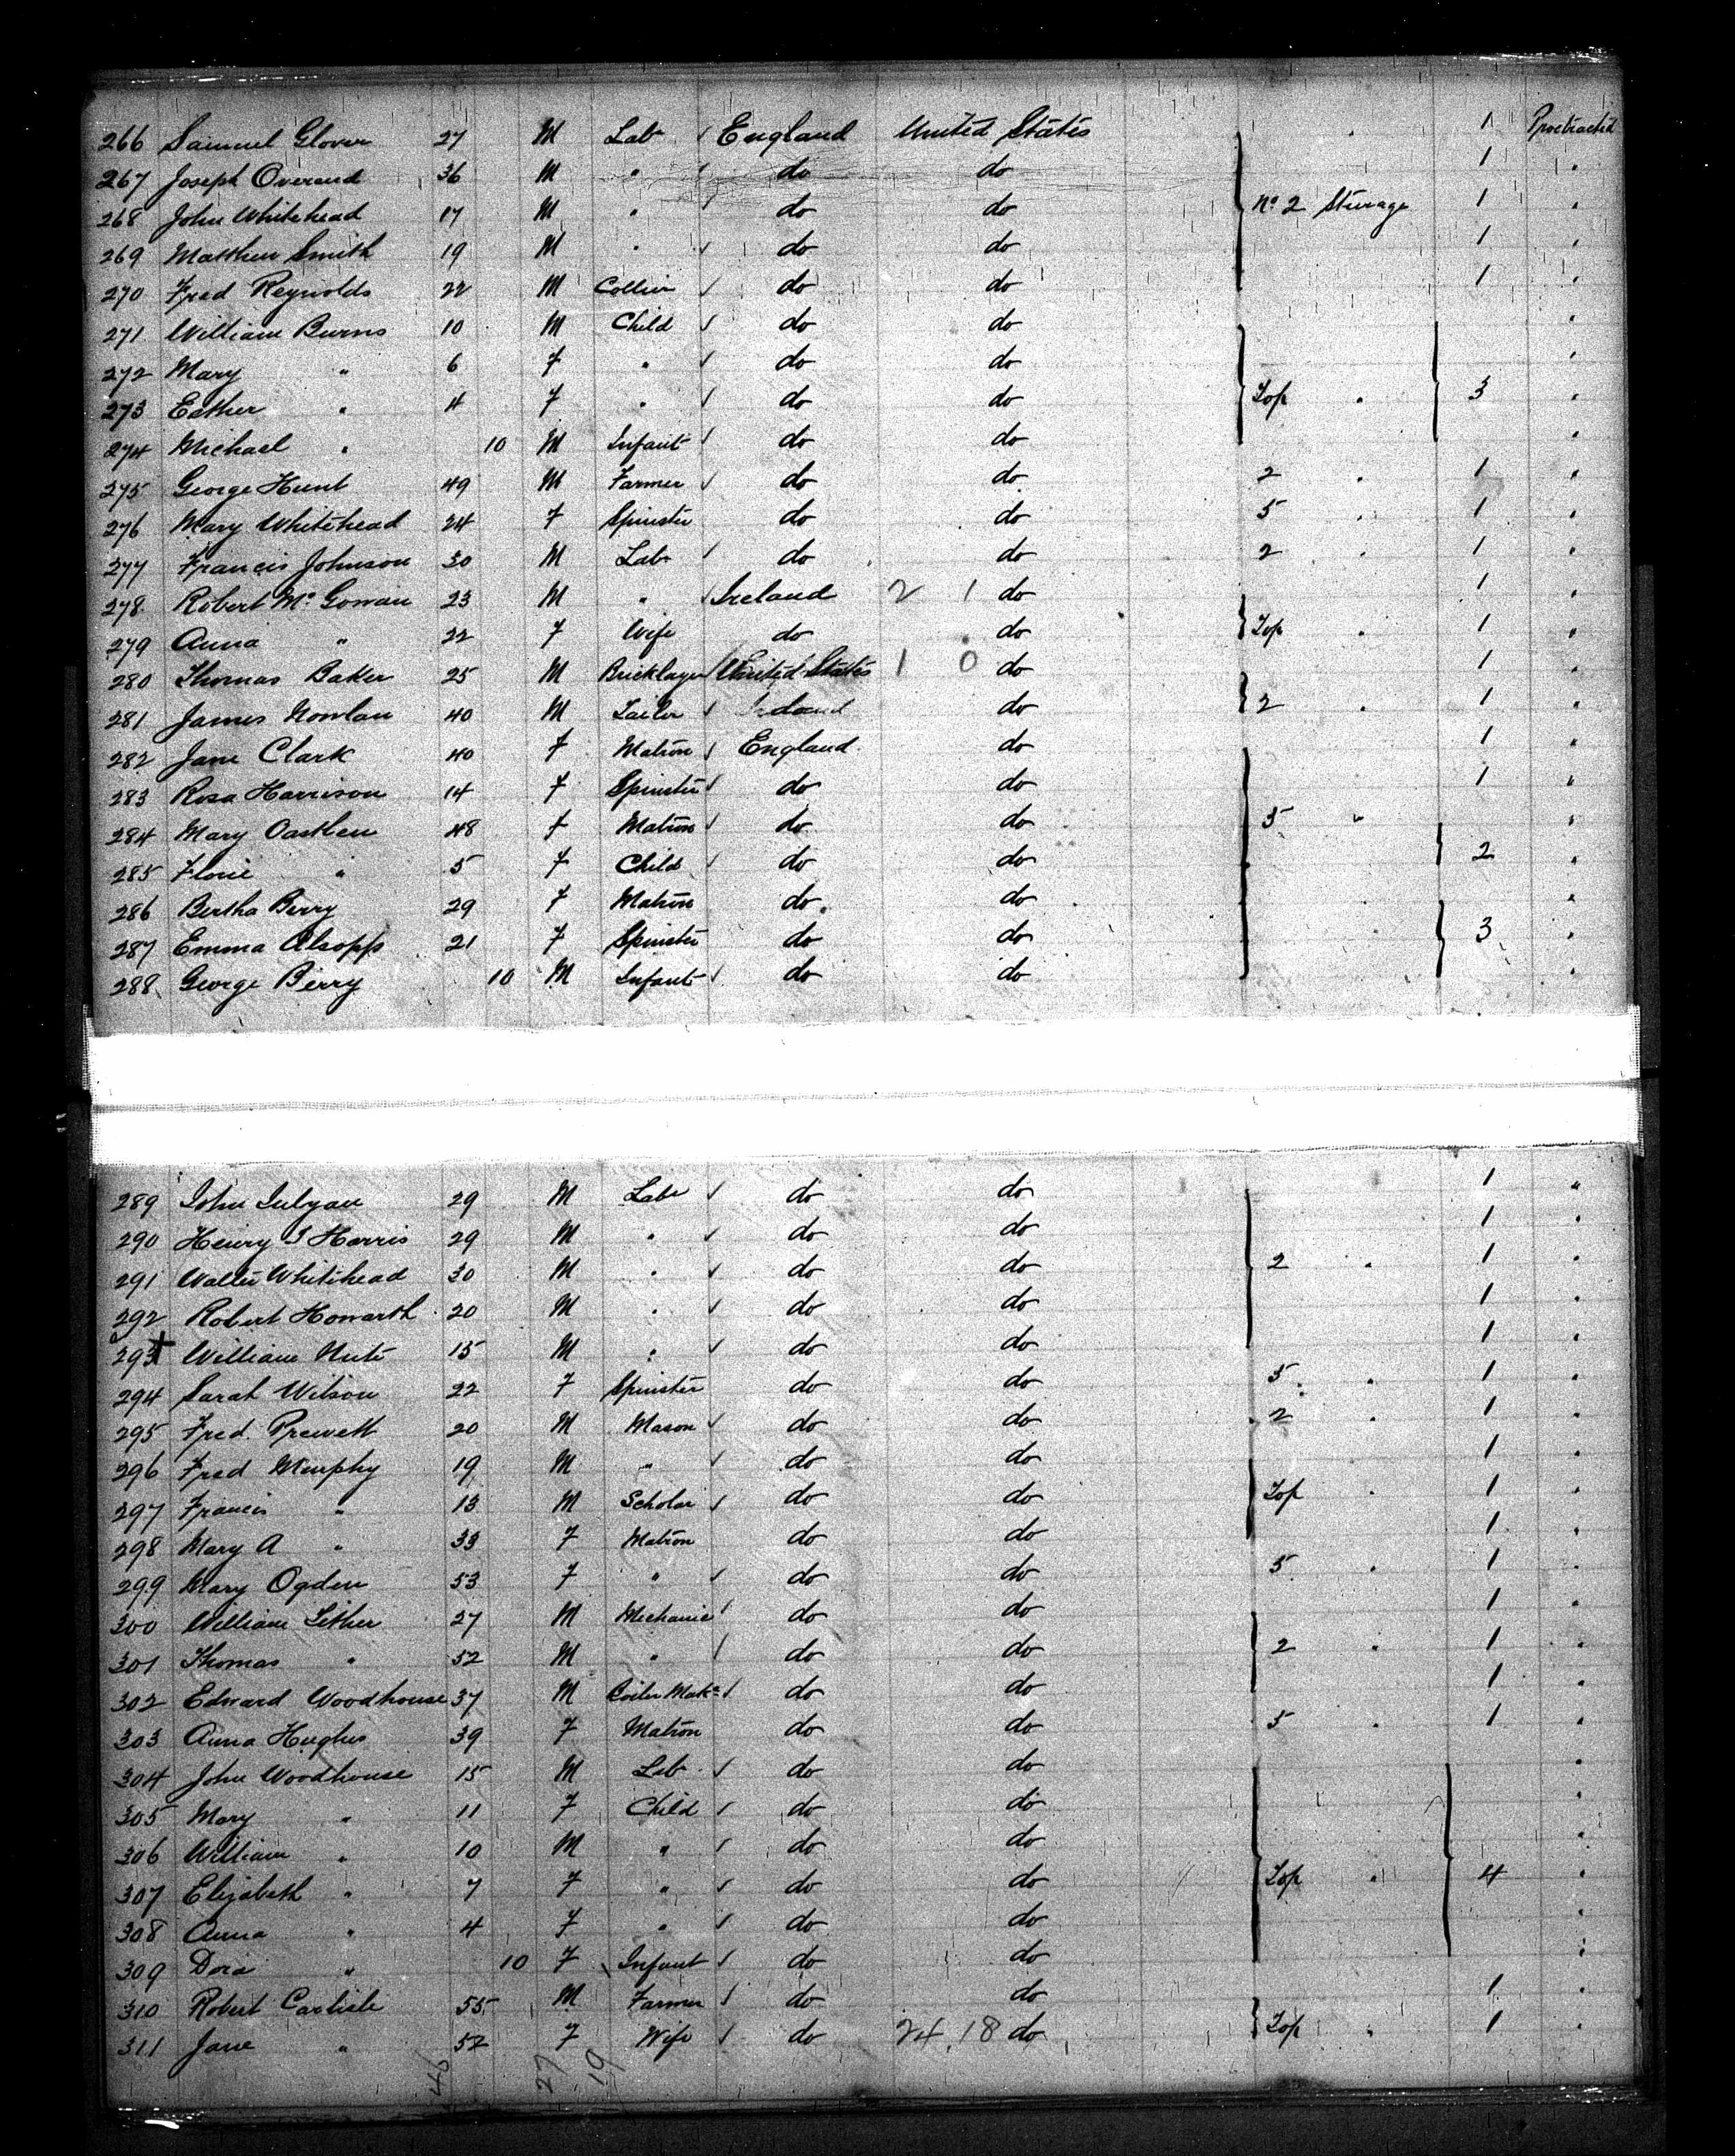 266 Samuel Glover 27 M Lab England United States 1 Protracted
267 Joseph Overend 36 M " do do 1 "
268 John Whitehead 17 M " do do No 2 Sturage 1 "
269 Matthew Smith 19 M " do do 1 "
270 Fred Reynolds 22 M Collier do do 1 "
271 William Burns 10 M Child do do "
272 Mary " 6 F " do do "
273 Esther " 4 F " do do Top " 3 "
274 Michael " 10 M Infant do do "
275 George Hunt 49 M Farmer do do 2 " 1 "
276 Mary Whitehead 24 F Spinster do do 5 " 1 "
277 Francis Johnson 30 M Lab do do 2 " 1 "
278 Robert Mc Gowan 23 M " Ireland 2 1 do 1 "
279 Anna " 22 F Wife do do Top " 1 "
280 Thomas Baker 25 M Bricklayer United States 1 0 do 1 "
281 James Nowlan 40 M Tailor do 2 " 1 "
282 Jane Clark 40 F Matron England do 1 "
283 Rosa Harrison 14 F Spinster do do 1 "
284 Mary 48 F Matron do do 5 " "
285 Florie " 5 F Child do do 2 "
286 Bertha Berry 29 F Matron do do "
287 Emma Alsopp 21 F Spinster do do 3 "
288 George Berry 10 M Infant do do "
289 John 29 M Lab do do 1 "
290 Henry J Harris 29 M " do do 1 "
291 Walter Whitehead 30 M " do do 2 " 1 "
292 Robert Howarth 20 M " do do 1 "
293 William 15 M " do do 1 "
294 Sarah Wilson 22 F Spinster do do 5 " 1 "
295 Fred. Prewett 20 M Mason do do 2 " 1 "
296 Fred Murphy 19 M " do do 1 "
297 Francis " 13 M Scholar do do Top " 1 "
298 Mary A " 33 F Matron do do 1 "
299 Mary Ogden 53 F " do do 5 " 1 "
300 William Lither 27 M Mechanic do do 1 "
301 Thomas " 52 M " do do 2 " 1 "
302 Edward Woodhouse 37 M do do 1 "
303 Anna Hughes 39 F Matron do do 5 " 1 "
304 John Woodhouse 15 M Lab do do "
305 Mary " 11 F Child do do "
306 William " 10 M " do do "
307 Elizabeth " 7 F " do do Top " 4 "
308 Anna " 4 F " do do "
309 Dora " 10 F Infant do do "
310 Robert Carlisle 55 M Farmer do do 1 "
311 Jane " 52 F Wife do 24 18 do Top " 1 "
46 27 19